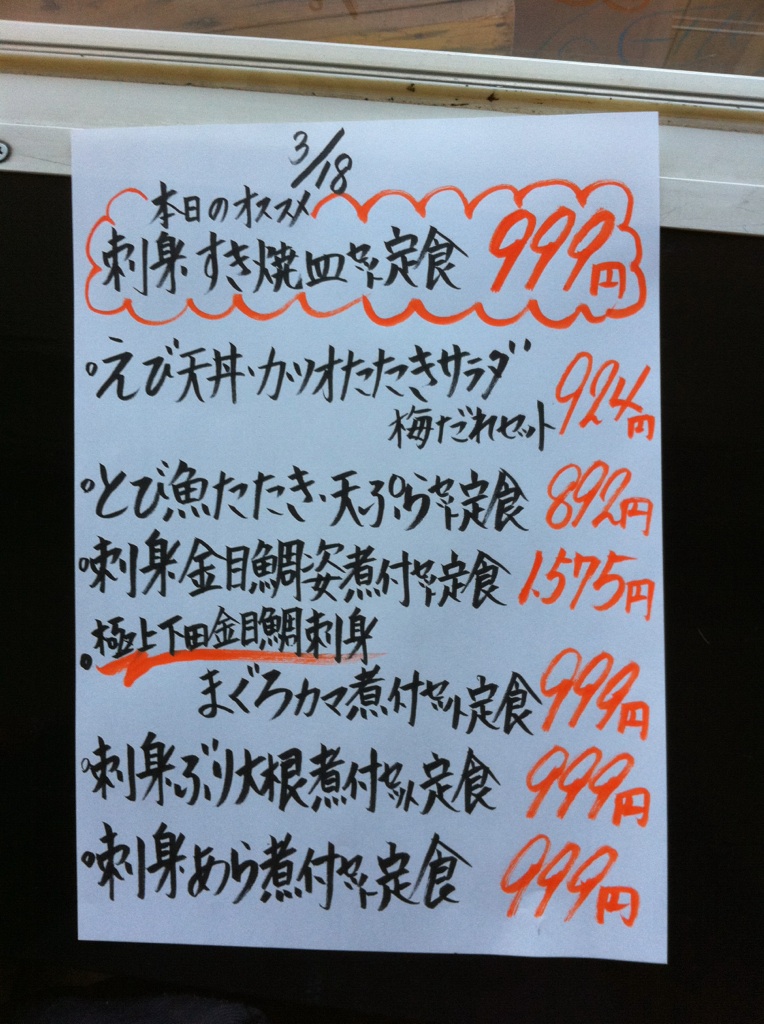 3/18
本日のオススメ
刺身すき焼皿セット定食 999円
えび天丼・カツオたたきサラダ
梅だれセット 924円
とび魚たたき・天ぷらセット定食 892円
刺身金目鯛姿煮付セット定食 1.575円
極上下田金目鯛刺身
まぐろカマ煮付セット定食 999円
刺身ぶり大根煮付セット定食 999円
刺身あら煮付セット定食 999円